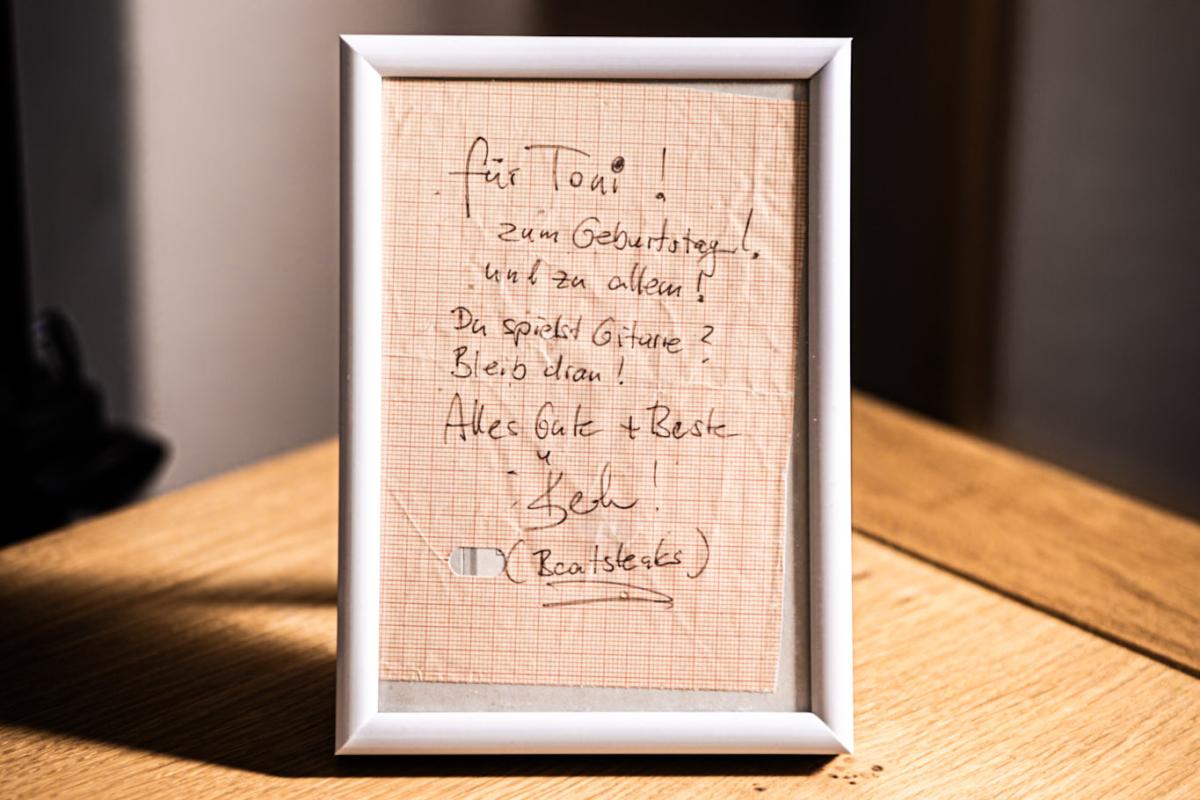 für Toni !
zum Geburtstag !
und zu allem !
Du spielst Gitarre ?
Bleib dran !
Alles Gute + Beste
(Beatsteaks)